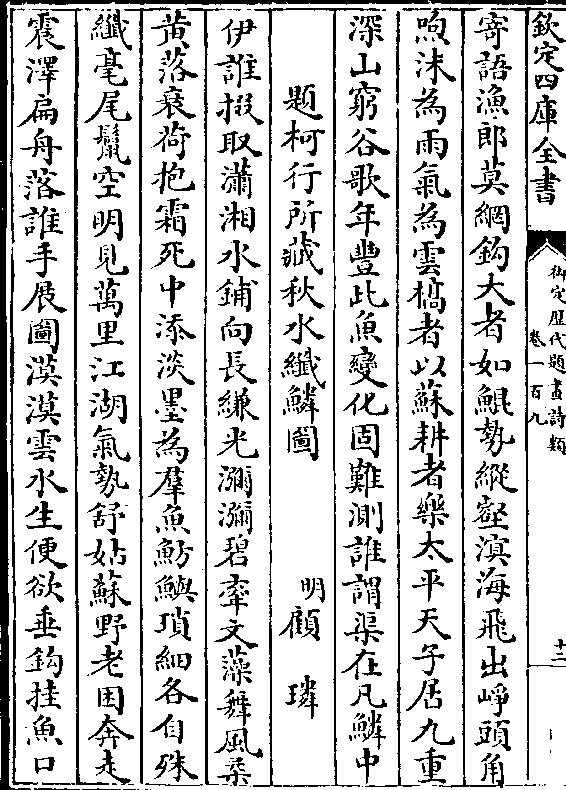 欽定四庫全書
御定歷代題畫詩類
卷一百九
十二
寄語漁郎莫網鈎大者如鯤勢縱壑溟海飛出崢頭角
喣沬為雨氣為雲槁者以蘇耕者樂太平天子居九重
深山窮谷歌年豐此魚變化固難測誰謂渠在凡鱗中
題柯行所藏秋水纖鱗圖
明顧璘
伊誰掇取瀟湘水鋪向長縑光瀰瀰碧牽文藻舞風柔
黄落衰荷抱霜死中添淡墨為羣魚魴鱮瑣細各自殊
纖毫尾鬛空明見萬里江湖氣勢舒姑蘇野老困奔走
震澤扁舟落誰手展圖漠漠雲水生便欲垂鈎挂魚口